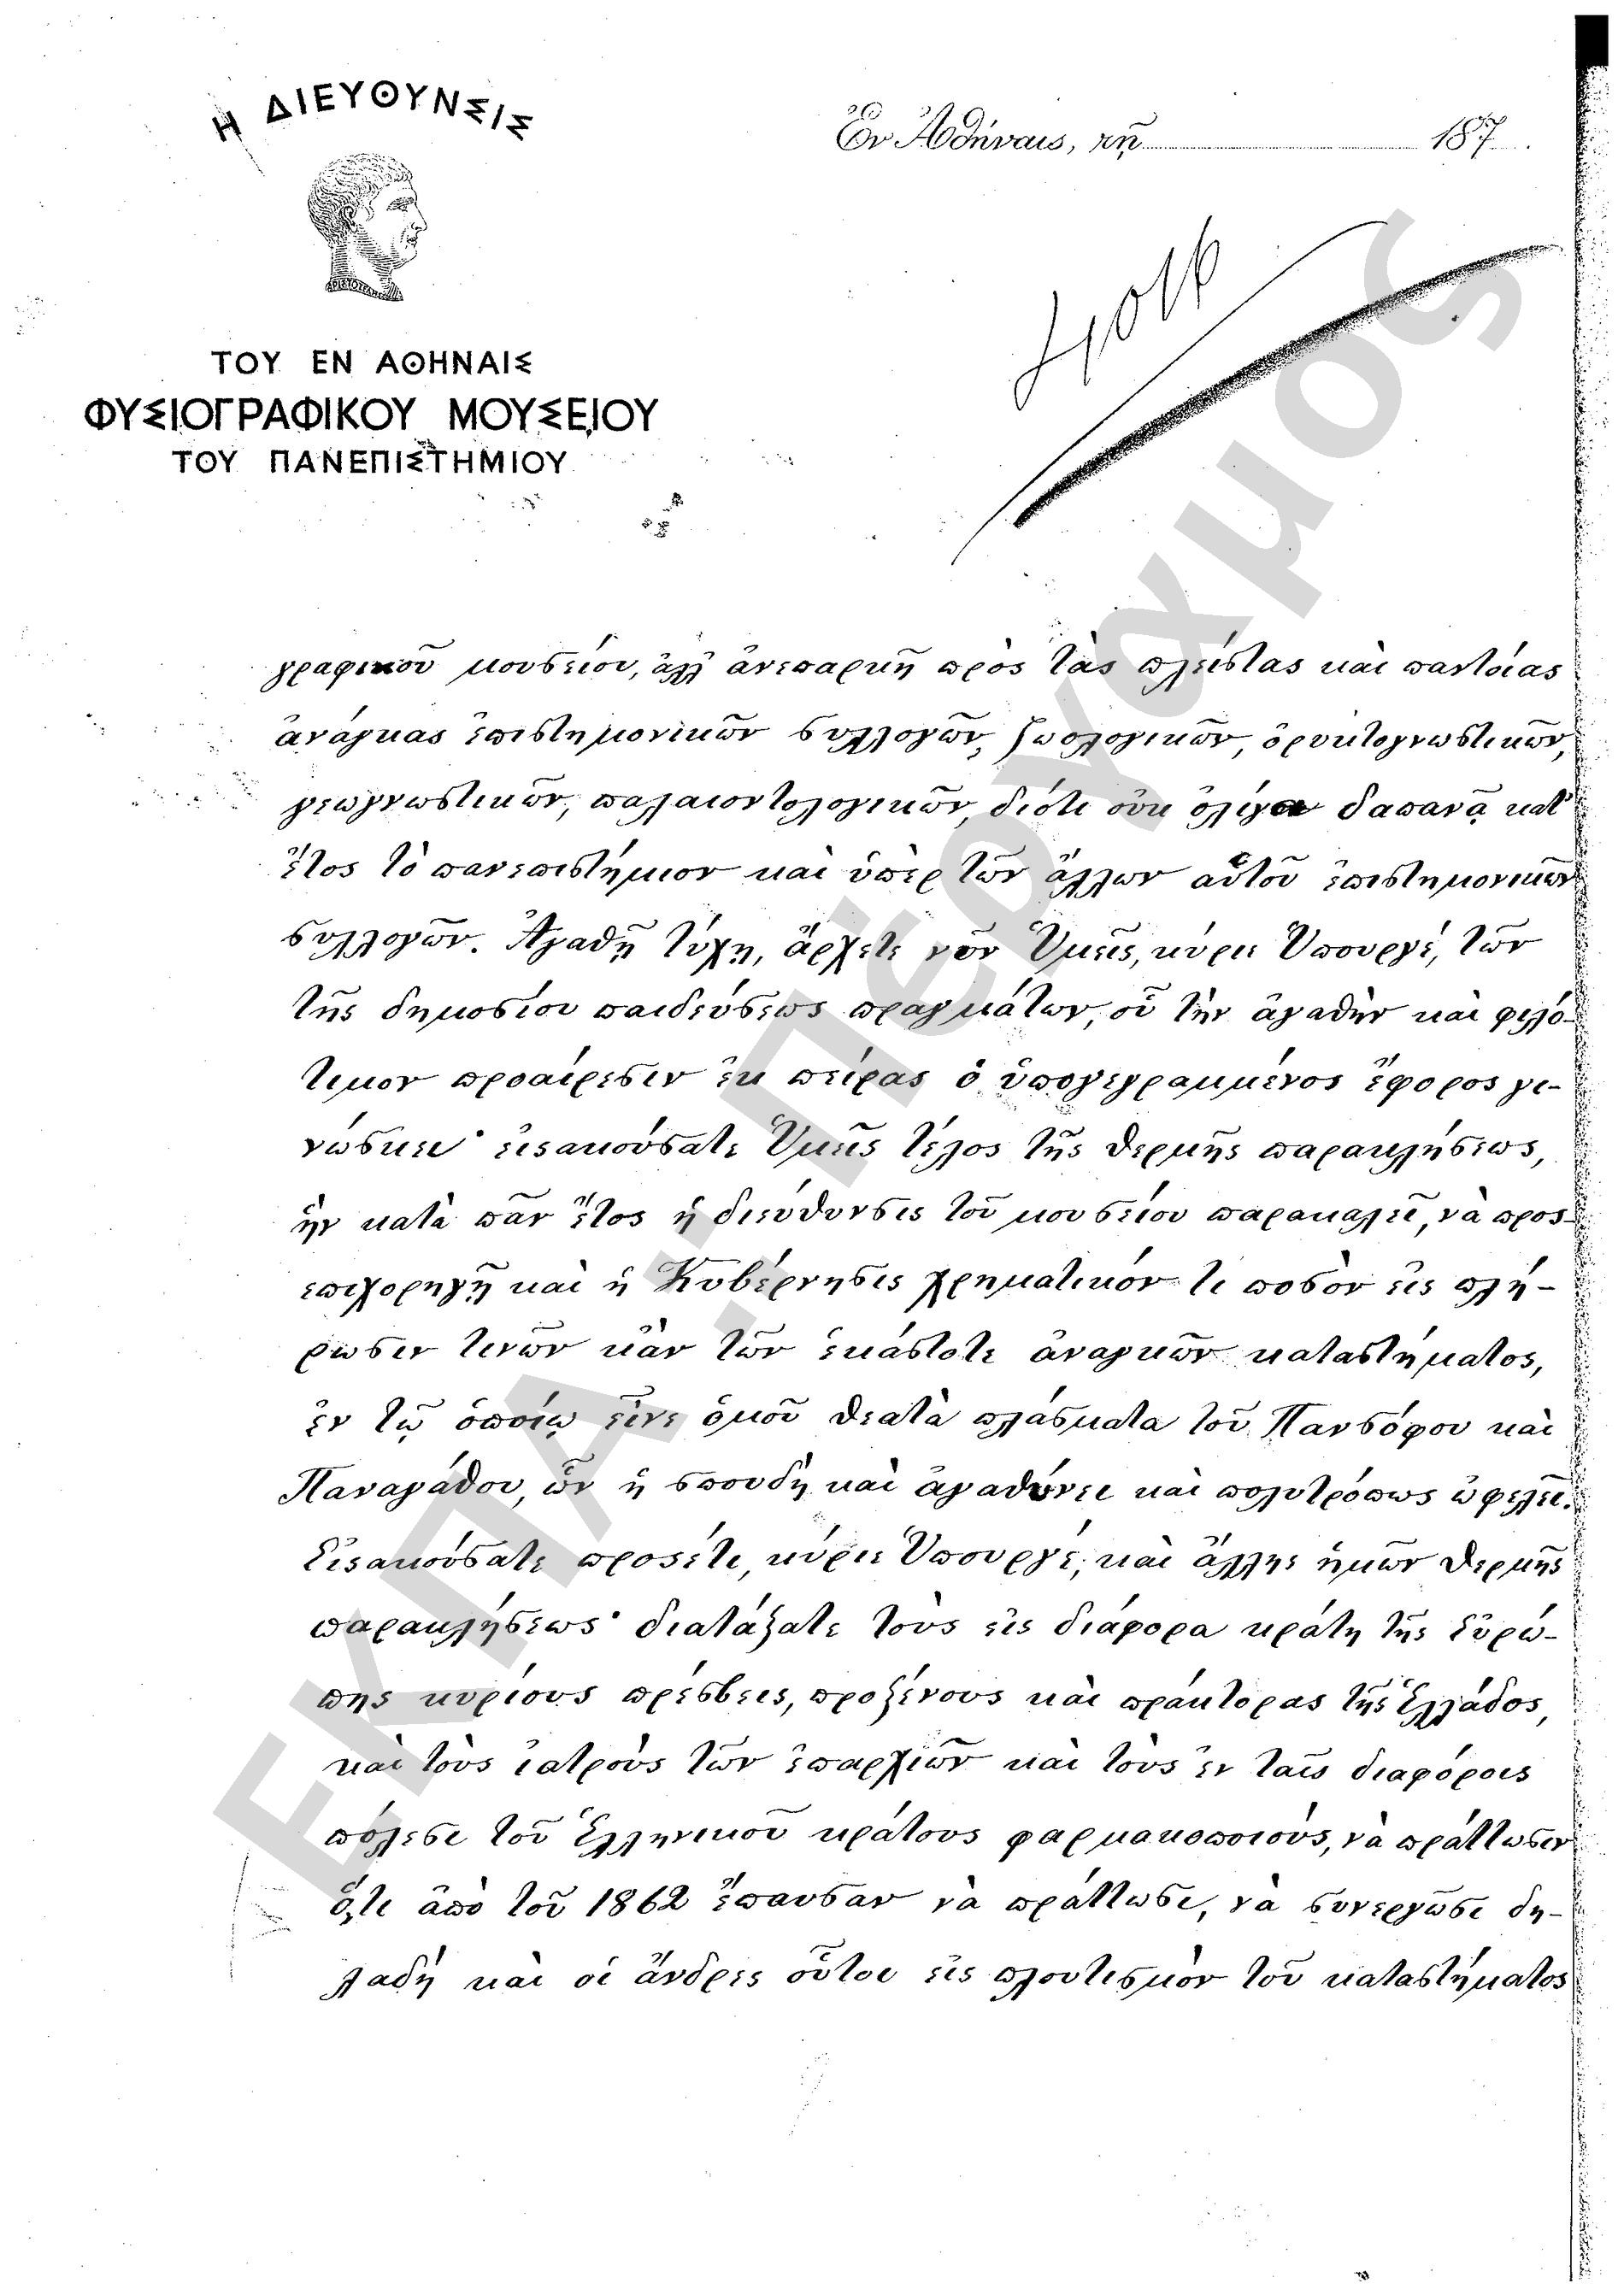 Η ΔΙΕΥΘΥΝΣΙΣ
ΤΟΥ ΕΝ ΑΘΗΝΑΙΣ
ΦΥΣΙΟΓΡΑΦΙΚΟΥ ΜΟΥΣΕΙΟΥ
ΤΟΥ ΠΑΝΕΠΙΣΤΗΜΙΟΥ
Ἐν Ἀθήναις, τῇ 187 .
γραφικοῦ μουσείου, ἀλλ' ἀνεπαρκῆ πρὸς τὰς πλείστας καὶ παντοίας
ἀνάγκας ἐπιστημονικῶν συλλογῶν, ζωολογικῶν, ὀρυκτογνωστικῶν,
γεωγνωστικῶν, παλαιοντολογικῶν, διότι οὐκ ὀλίγα δαπανᾷ κατ'
ἔτος τὸ πανεπιστήμιον καὶ ὑπὲρ τῶν ἄλλων αὐτοῦ ἐπιστημονικῶν
συλλογῶν. Ἀγαθῇ τύχῃ, ἄρχετε νῦν Ὑμεῖς, κύριε Ὑπουργέ, τῶν
τῆς δημοσίου παιδεύσεως πραγμάτων, οὗ τὴν ἀγαθὴν καὶ φιλό-
τιμον προαίρεσιν ἐκ πείρας ὁ ὑπογεγραμμένος ἔφορος γι-
νώσκει· εἰσακούσατε Ὑμεῖς τέλος τῆς θερμῆς παρακλήσεως,
ἣν κατὰ πᾶν ἔτος ἡ διεύθυνσις τοῦ μουσείου παρακαλεῖ, νὰ προσ-
επιχορηγῇ καὶ ἡ Κυβέρνησις χρηματικόν τι ποσὸν εἰς πλή-
ρωσιν τινῶν κἂν τῶν ἑκάστοτε ἀναγκῶν καταστήματος,
ἐν τῷ ὁποίῳ εἶνε ὁμοῦ θεατὰ πλάσματα τοῦ Πανσόφου καὶ
Παναγάθου, ὧν ἡ σπουδὴ καὶ ἀγαθύνει καὶ πολυτρόπως ὠφελεῖ.
Εἰσακούσατε προσέτι, κύριε Ὑπουργέ, καὶ ἄλλης ἡμῶν θερμῆς
παρακλήσεως· διατάξατε τοὺς εἰς διάφορα κράτη τῆς Εὐρώ-
πης κυρίους πρέσβεις, προξένους καὶ πράκτορας τῆς Ἑλλάδος,
καὶ τοὺς ἰατροὺς τῶν ἐπαρχιῶν καὶ τοὺς ἐν ταῖς διαφόροις
πόλεσι τοῦ Ἑλληνικοῦ κράτους φαρμακοποιούς, νὰ πράττωσιν
ὅ,τι ἀπὸ τοῦ 1862 ἔπαυσαν νὰ πράττωσι, νὰ συνεργῶσι δη-
λαδὴ καὶ οἱ ἄνδρες οὗτοι εἰς πλουτισμὸν τοῦ καταστήματος
ΕΚΠΑ - Πέργαμος